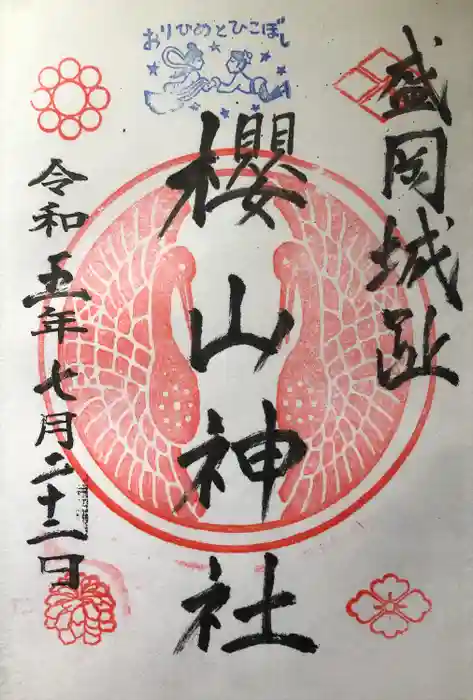 おりひめとひこぼし
盛岡城址
櫻山神社
令和五年七月二十二日